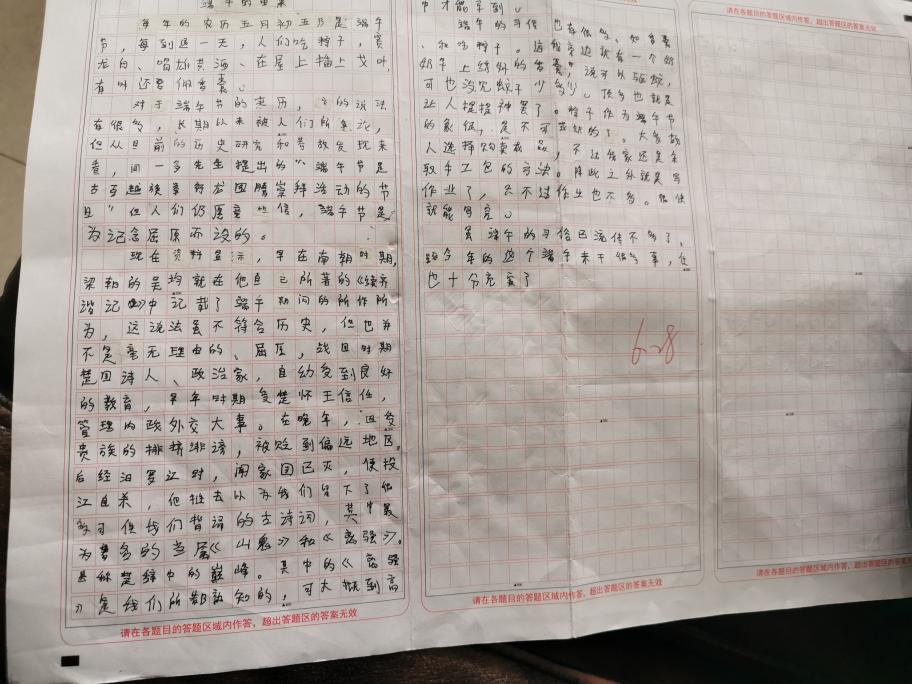 端午的由来
每年的农历五月初五乃是端午
节，每到这一天，人们吃粽子，赛
龙舟、喝雄黄酒、在屋上插上艾叶，
有时还要佩香囊。
对于端午节的来历，的说法
有很多，长期以来被人们所
但从目前的历史研究和考故发现来
看，闻一多先生提出的“端午节是
古百越族举行图腾崇拜活动的节
日”但人们仍愿意相信，端午节是
为记念屈原而设的。
现在资料显示，早在南朝时期，
梁朝的吴均就在他自己所著的《续齐
谐记》中记载了端午期间的所作所
为，这说法虽不符合历史，但也并
不是毫无理由的、屈原，战国时期
楚国诗人、政治家，自幼受到良好
的教育，早年时期受楚怀王信任，
管理内政外交大事。在晚年，因受
贵族的排挤诽谤，被贬到偏远地区。
后经汨罗江时，闻家国已灭，便投
江自杀，他
供我们背诵的古诗词，其中最
为著名的当属《山鬼》和《离骚》。
堪称楚辞中的巅峰。其中的《离骚
》是我们所都熟知的，可大概到高
中才能学到。
端午的习俗也有很多。如香囊
、和吃粽子。
奶手上缝好的香囊，说可以驱蚊，
可也没见蚊子少多少。顶多也就是
让人提提神罢了。粽子作为端午节
的象征，是不可或缺的了。大多数
人选择购卖成品，不过我家还是采
取手工包的方法。除此之外就是写
作业了，只不过作业也不多。很快
就能写完。
虽端午的习俗已流传不多了，
但今年的这个端午来干很多事，但
也十分充实了
6.28
请在各题目的答题区域内作答，超出答题区的答案无效
请在各题目的答题区域内作答，超出答题区的答案无效
请在各题目的答题区域内作答，超出答题区的答案无效
请在各题目的答题区域内作答，超出答题区的答案无效